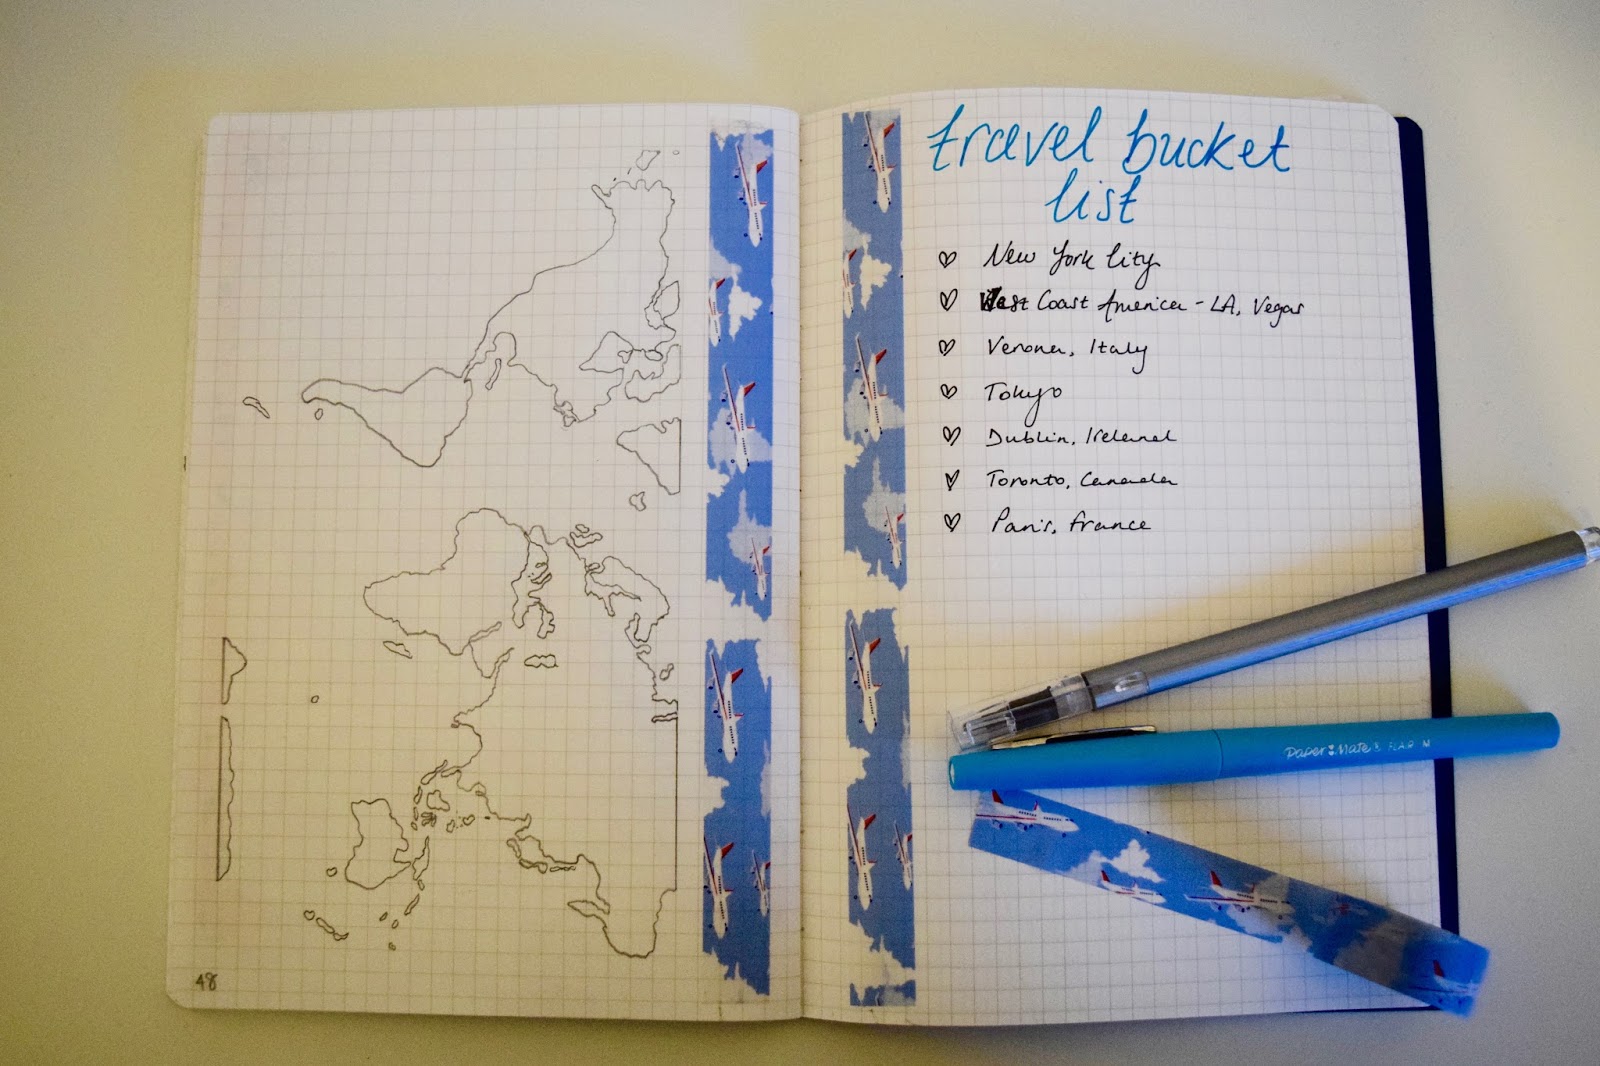 travel bucket
list
New York City
West Coast America - LA, Vegas
Verona, Italy
Tokyo
Dublin, Ireland
Toronto, Canada
Paris, France
Paper Mate ® FLAIR M
48